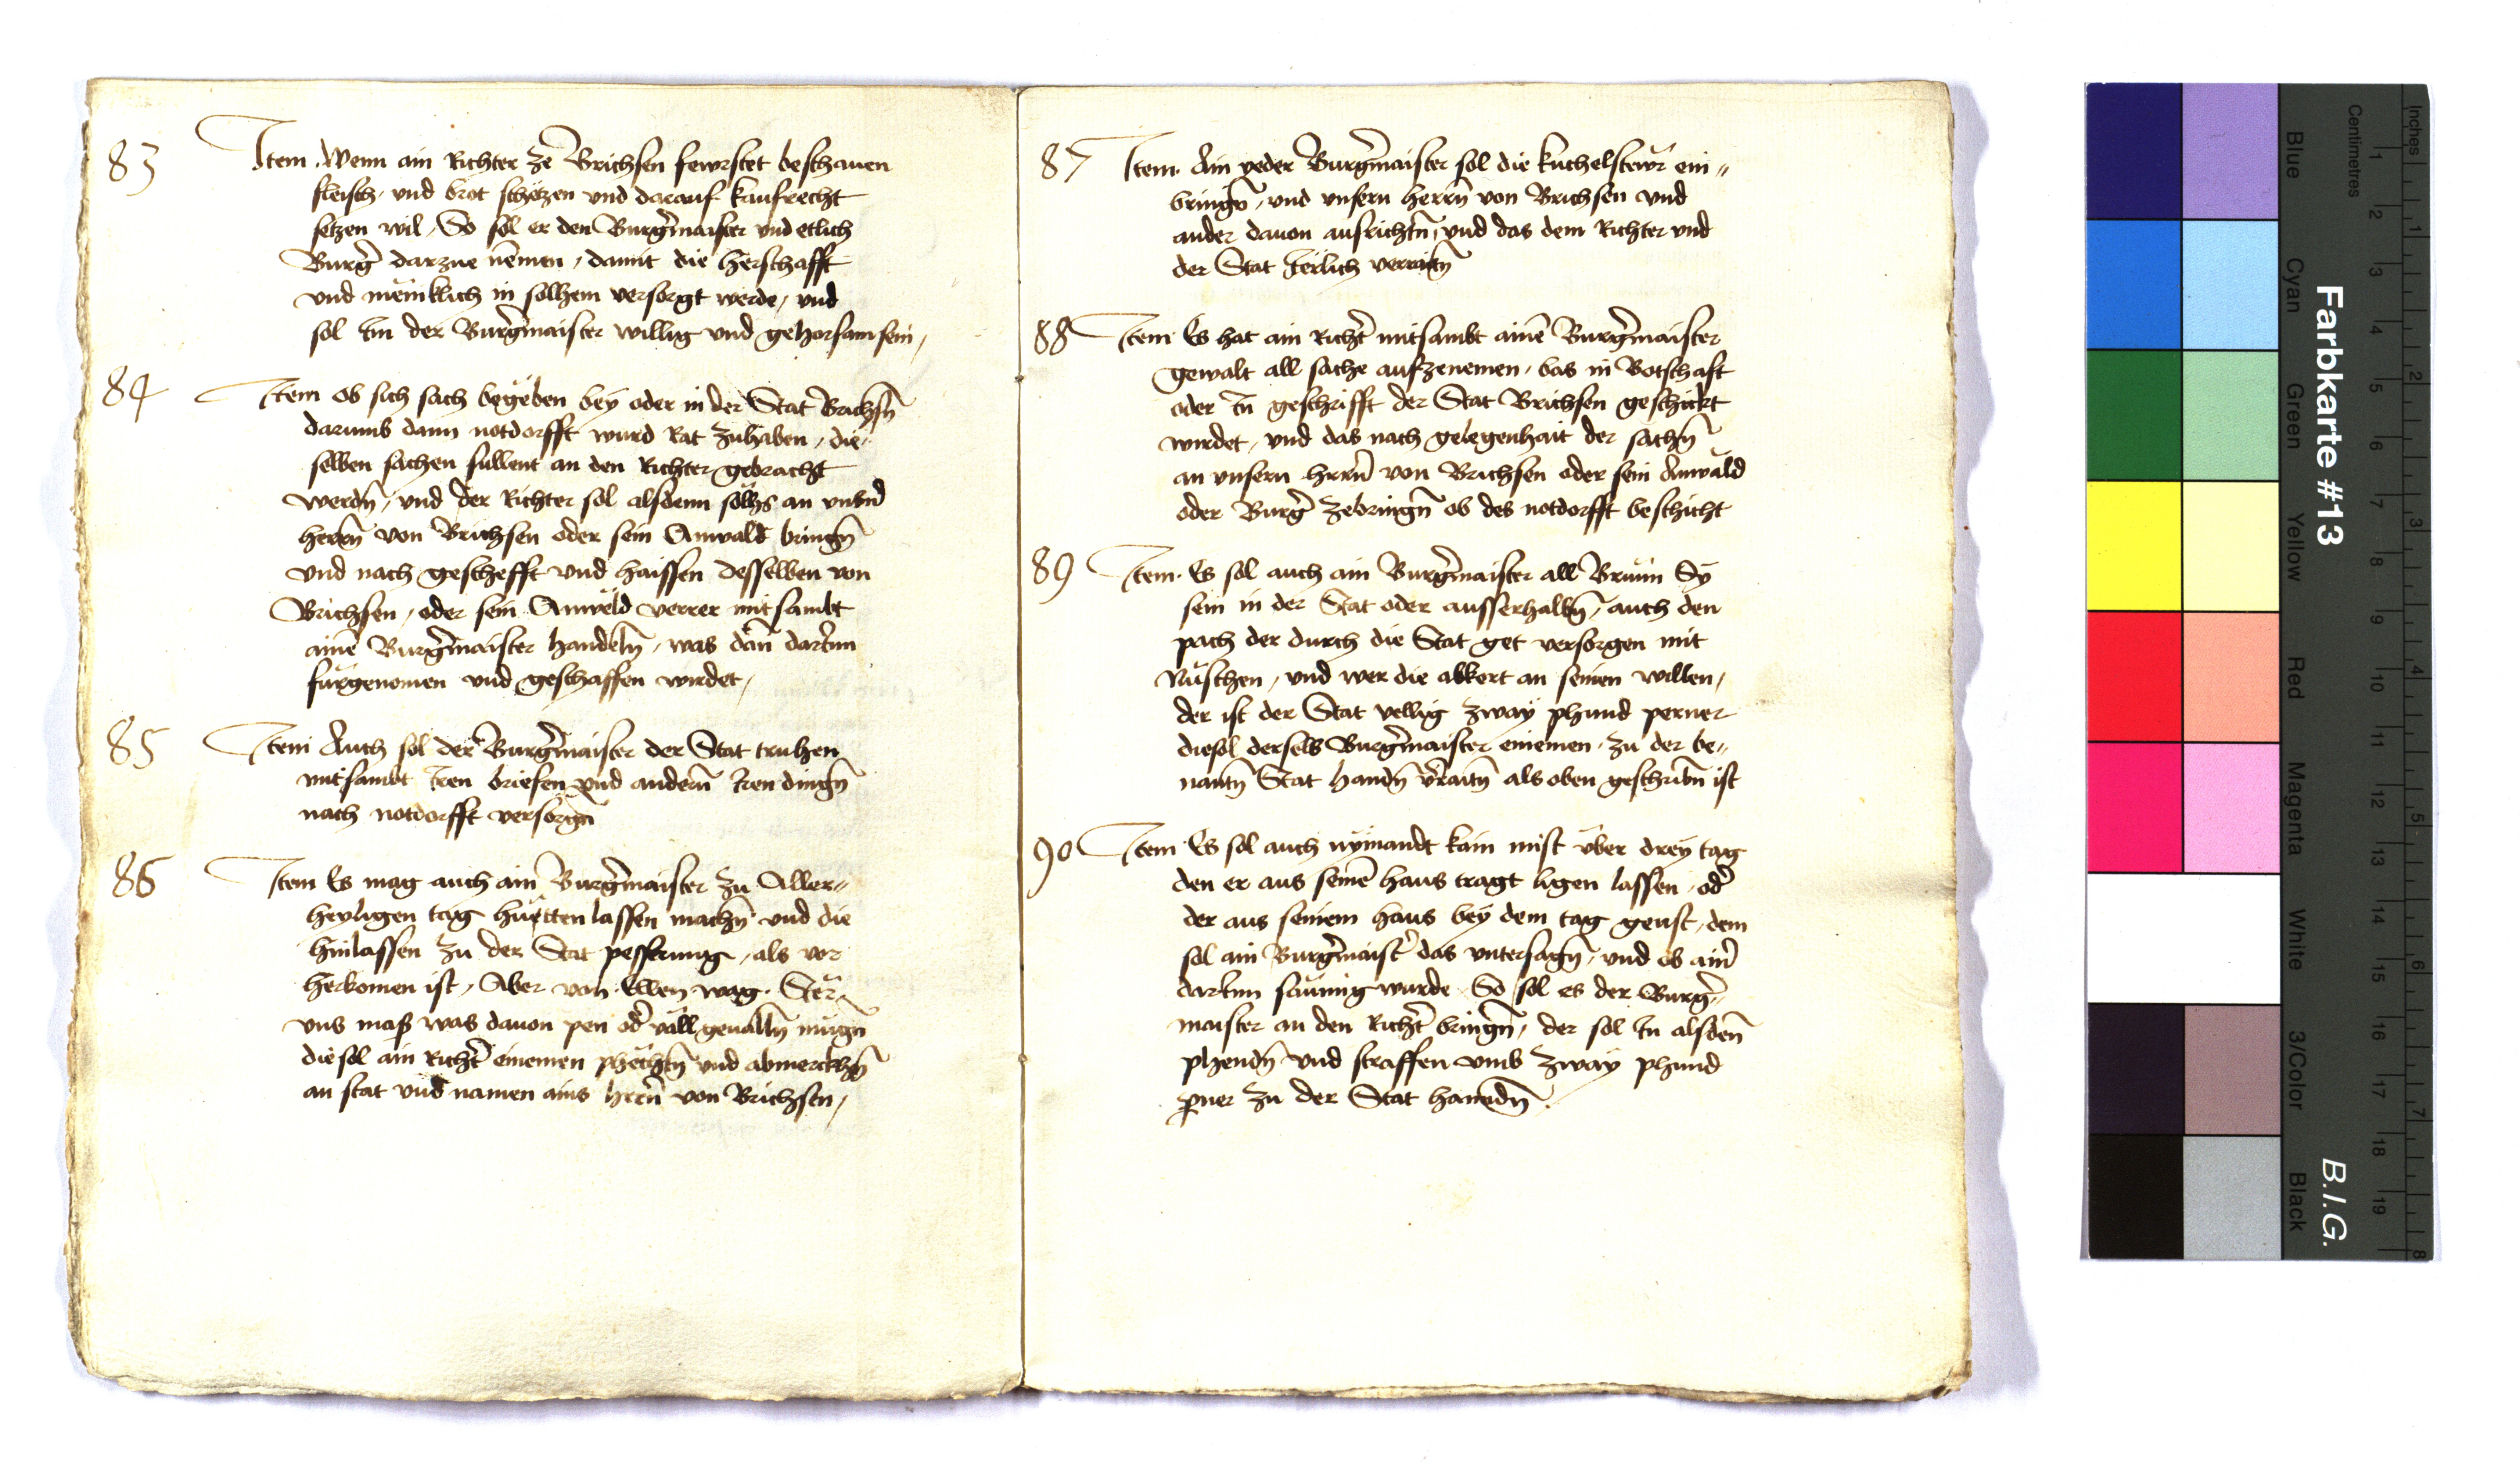 83 Item. Wenn ain Richter ze Brichsen fewrstet beschauen
fleisch, und brot schetzen und darauf kaufrecht
setzen wil, So sol er den Burgermaister und etlich
Burger darzue nemen, damit die herschafft
und meniklich in solhem versorgt werde, und
sol im der Burgermaister willig und gehorsam sein,
84 Item ob sich sach begeben bey oder in der Stat Brichsn̄
darumb dann notdorfft wurd Rat zuhaben, die
selben sachen sullent an den Richter gebracht
werdn̄, und der Richter sol alsdenn solhs an unsn̄
herrn̄ von Brichsen oder sein Anwald bringn̄
und nach geschefft und haissen desselben von
Brichsen, oder sein Anweld verrer mitsambt
ainē Burgermaister handeln̄, was dan̄ darinn
furgenomen und geschaffen wirdet,
85 Item Auch sol der Burgermaister der Stat truhen
mitsambt iren briefen und andern̄ iren dingn̄
nach notdorfft versorgn̄
86 Item Es mag auch ain Burgermaister zu Aller„
heyligen tag huetten lassen machn̄ und die
hinlassen zu der Stat pesserung, als vor
herkomen ist, Aber von Ellen wag. Ster„
uns mass was dauon pen od̄ väll geualln̄ mugn̄
die sol ain Richt̄ einemen phechtn̄ und abmerckhn̄
an stat und namen ains herrn̄ von Brichsen,
87 Item. Ain yeder Burgermaister sol die kuchelstewr ein„
bringn̄, und unsern herrn̄ von Brichsen und
ander dauon ausrichtn̄, und das dem Richter und
der Stat Jerlich verraitn̄
88 Item Es hat ain Richt̄ mitsambt ainē Burgermaister
gewalt all sache aufzenemen, das in Botschaft
oder in geschrifft der Stat Brichsen geschickt
wirdet, und das nach gelegenhait der sachn̄
an unsern hrrn̄ von Brichsen oder sein Anwald
oder Burger zebringn̄ ob des notdorfft beschicht
89 Item. Es sol auch ain Burgermaister all Brunn Sy
sein in der Stat oder ausserhalbn̄, auch den
pach der durch die Stat get versorgen mit
Nuschen, und wer die abkert an seinen willen,
der ist der Stat vellig zway phund perner
die sol derselb Burgermaister einemen, zu der be„
nantn̄ Stat handn̄ v̄raitn̄ als oben geschribn̄ ist
90 Item Es sol auch nymandt kain mist über drey tag
den er aus seinē haus tragt ligen lassen, od̄
der aus seinem haus bey dem tag geust, dem
sol ain Burgermaist̄ das untersagn̄, und ob ain̄
darinn saumig wurde So sol es der Burger„
maister an den Richt̄ bringn̄, der sol in alsden̄
phendn̄ und straffen umb zway phund
p̄ner zu der Stat hanndn̄.
Farbkarte #13
B.I.G.
Centimetres
Inches
Blue
Cyan
Green
Yellow
Red
Magenta
White
3/Color
Black
1 2 3 4 5 6 7 8 9 10 11 12 13 14 15 16 17 18 19
1 2 3 4 5 6 7 8